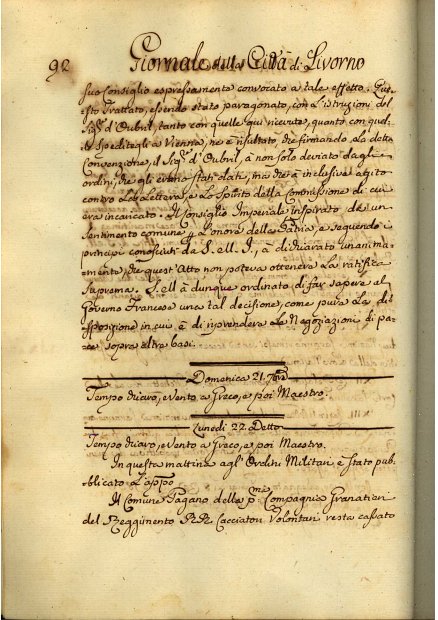 92 Giornale della Città di Livorno
suo Consiglio espressamente convocato a tale effetto. Que-
sto Trattato, essendo stato paragonato, con l'istruzioni del
Sigr. d'Oubril, tanto con quelle qui ricevute, quanto con quel-
le speditegli a Vienna, ne è risultato, che firmando la detta
Convenzione, il Sigr. d'Oubril, à non solo deviato dagl'-
ordini, che gli erano stati dati, ma che à inclusive agito
contro la Lettera, e lo Spirito della Commissione di cui
era incaricato. Il Consiglio Imperiale inspirato da un
sentimento comune, l'onore della Patria, e seguendo i
principi conosciuti da S. M. I., à dichiarato unanima-
mente, che quest'Atto non poteva ottenere la ratifica
suprema. S. M. à dunque ordinato di far sapere al
Governo Francese una tal decisione, come pure la di-
sposizione in cui è di riprendere le Negoziazioni di pa-
ce sopra altre basi.
Domenica 21. 7bre
Tempo chiaro, e Vento, a Greco, e poi Maestro.
Lunedì 22. Detto
Tempo chiaro, e Vento a Greco, e poi Maestro.
In questa mattina agl'Ordini Militari è stato pub-
blicato l'appo
Il Comune Pagano della pma. Compagnia Granatieri
del Reggimento Rle. Cacciatori Volontari resta cassato